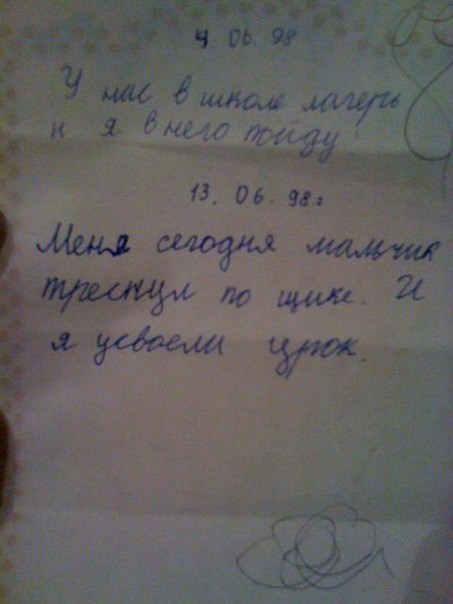 4. 06. 98
У нас в школе лагерь
и я в него пойду!
13. 06. 98г
Меня сегодня мальчик
треснул по щике. И
я усвоели урок.